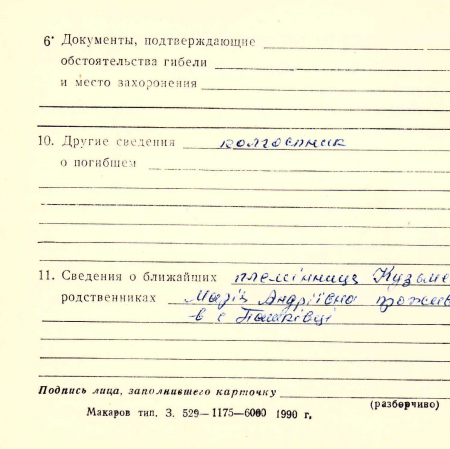 6* Документы, подтверждающие
обстоятельства гибели
и место захоронения
10. Другие сведения колгоспник
о погибшем
11. Сведения о ближайших племінниця Кузьме
родственниках Марія Андріївна прожив
в с Пашківці
Подпись лица, заполнившего карточку
(разборчиво)
Макаров тип. З. 529—1175—6000 1990 г.